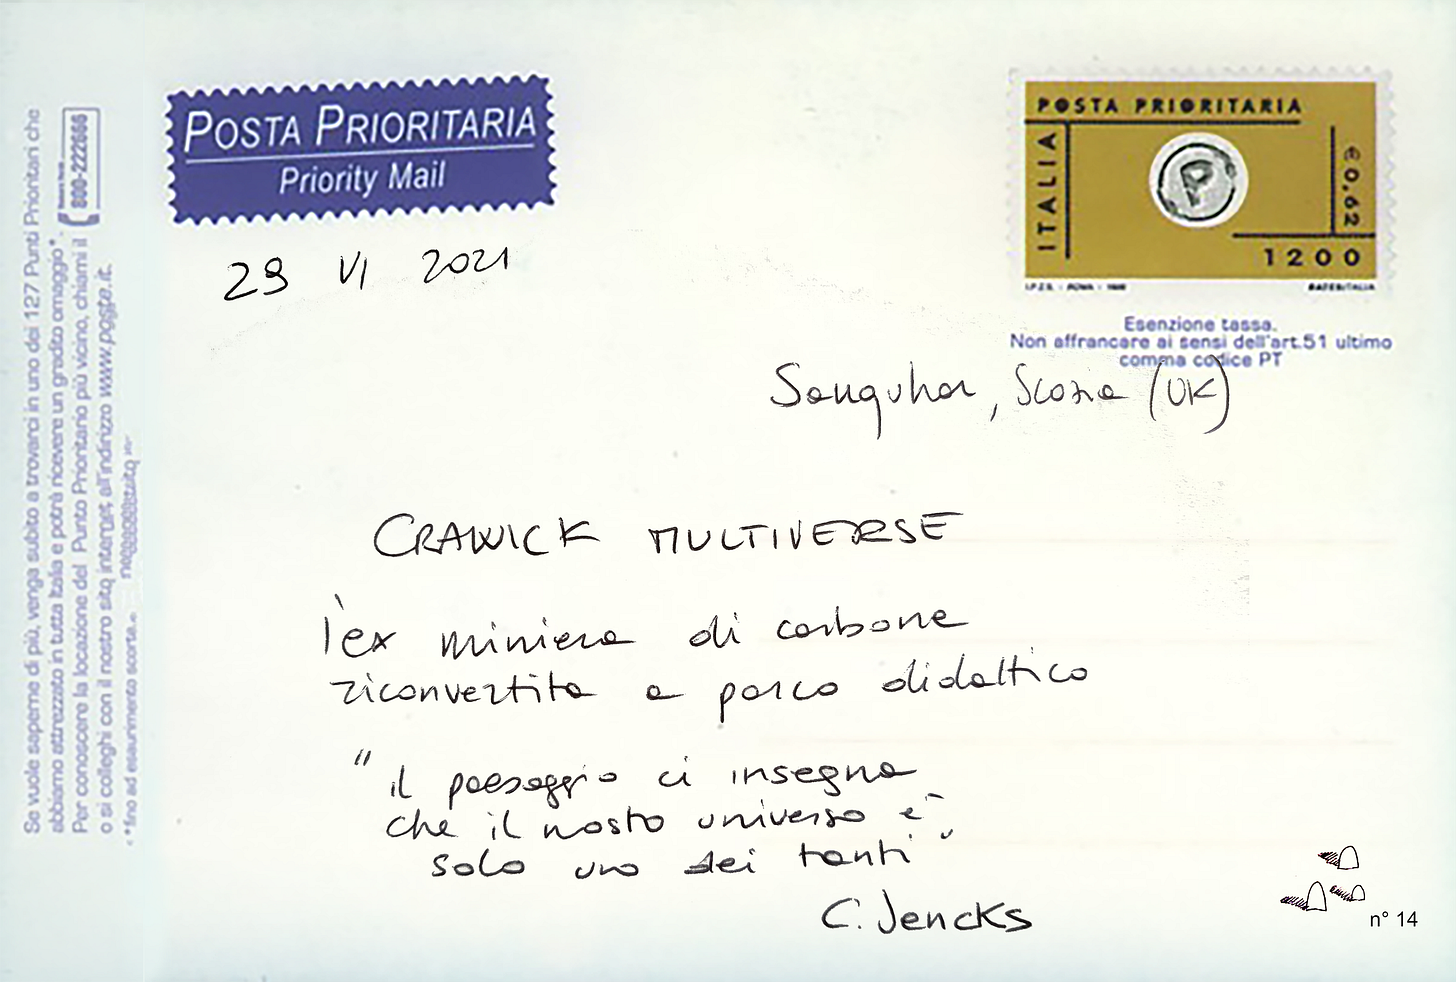 POSTA PRIORITARIA
Priority Mail
POSTA PRIORITARIA
ITALIA
€ 0,62
1200
I.P.Z.S. - ROMA - 1999
P
Esenzione tassa.
Non affrancare ai sensi dell'art.51 ultimo
comma codice PT
29 VI 2021
Sanquhar, Scozia (UK)
CRAWICK MULTIVERSE
l'ex miniera di carbone
riconvertita a parco didattico
"il paesaggio ci insegna
che il nosto universo è
solo uno dei tanti"
C. Jencks
n° 14
Se vuole saperne di più, venga subito a trovarci in uno dei 127 Punti Prioritari che
abbiamo attrezzato in tutta Italia e potrà ricevere un gradito omaggio*.
Per conoscere la locazione del Punto Prioritario più vicino, chiami il 800-222666
o si colleghi con il nostro sito internet all'indirizzo www.poste.it.
*fino ad esaurimento scorte.